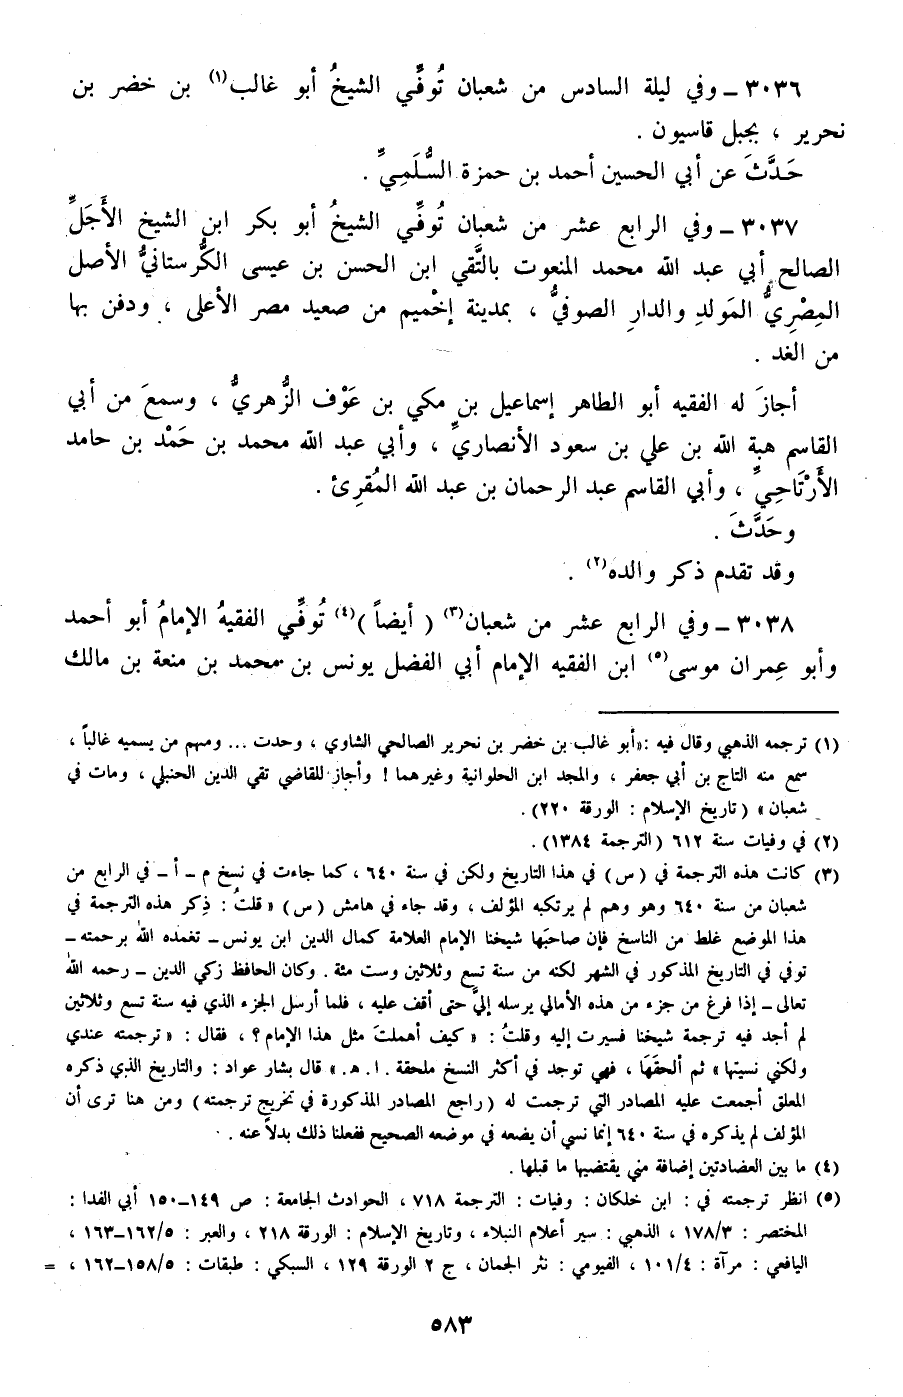 ٣٠٣٦ ــ وفي ليلة السادس من شعبان تُوفِّي الشيخُ أبو غالب(١) بن خضر بن
نحرير ، بجبل قاسيون .
حَدَّثَ عن أبي الحسين أحمد بن حمزة السُّلَميِّ .
٣٠٣٧ ــ وفي الرابع عشر من شعبان تُوفِّي الشيخُ أبو بكر ابن الشيخ الأَجَلِّ
الصالح أبي عبد الله محمد المنعوت بالتَّقي ابن الحسن بن عيسى الكُرستانيُّ الأصل
المِصْرِيُّ المَولدِ والدارِ الصوفيُّ ، بمدينة إخْميم من صعيد مصر الأعلى ، ودفن بها
من الغد .
أجازَ له الفقيه أبو الطاهر إسماعيل بن مكي بن عَوْف الزُّهريُّ ، وسمعَ من أبي
القاسم هبة الله بن علي بن سعود الأنصاريِّ ، وأبي عبد الله محمد بن حَمْد بن حامد
الأَرْتَاحِيِّ ، وأبي القاسم عبد الرحمان بن عبد الله المُقرِئ .
وحَدَّثَ .
وقد تقدم ذكر والده(٢) .
٣٠٣٨ ــ وفي الرابع عشر من شعبان(٣) ( أيضاً )(٤) تُوفِّي الفقيهُ الإمامُ أبو أحمد
وأبو عِمران موسى(٥) ابن الفقيه الإمام أبي الفضل يونس بن محمد بن منعة بن مالك
(١) ترجمه الذهبي وقال فيه : «أبو غالب بن خضر بن نحرير الصالحي الشاوي ، وحدث ... ومنهم من يسميه غالباً ،
سمع منه التاج بن أبي جعفر ، والمجد ابن الحلوانية وغيرهما ! وأجاز للقاضي تقي الدين الحنبلي ، ومات في
شعبان» (تاريخ الإسلام : الورقة ٢٢٠) .
(٢) في وفيات سنة ٦١٢ (الترجمة ١٣٨٤) .
(٣) كانت هذه الترجمة في (س) في هذا التاريخ ولكن في سنة ٦٤٠ ، كما جاءت في نسخ م ــ أ ــ في الرابع من
شعبان من سنة ٦٤٠ وهو وهم لم يرتكبه المؤلف ، وقد جاء في هامش (س) «قلتُ : ذِكر هذه الترجمة في
هذا الموضع غلط من الناسخ فإن صاحبَها شيخنا الإمام العلامة كمال الدين ابن يونس ــ تغمده الله برحمته ــ
توفي في التاريخ المذكور في الشهر لكنه من سنة تسع وثلاثين وست مئة . وكان الحافظ زكي الدين ــ رحمه الله
تعالى ــ إذا فرغ من جزء من هذه الأمالي يرسله إليَّ حتى أقف عليه ، فلما أرسل الجزء الذي فيه سنة تسع وثلاثين
لم أجد فيه ترجمة شيخنا فسيرت إليه وقلتُ : «كيف أهملتَ مثل هذا الإمام ؟ ، فقال : «ترجمته عندي
ولكني نسيتها» ثم ألحقَهَا ، فهي توجد في أكثر النسخ ملحقة . ا . هـ .» قال بشار عواد : والتاريخ الذي ذكره
المعلق أجمعت عليه المصادر التي ترجمت له (راجع المصادر المذكورة في تخريج ترجمته) ومن هنا ترى أن
المؤلف لم يذكره في سنة ٦٤٠ إنما نسي أن يضعه في موضعه الصحيح ففعلنا ذلك بدلاً عنه .
(٤) ما بين العضادتين إضافة مني يقتضيها ما قبلها .
(٥) انظر ترجمته في : ابن خلكان : وفيات : الترجمة ٧١٨ ، الحوادث الجامعة : ص ١٤٩ــ١٥٠ أبي الفدا :
المختصر : ٣/١٧٨ ، الذهبي : سير أعلام النبلاء ، وتاريخ الإسلام : الورقة ٢١٨ ، والعبر : ٥/١٦٢ــ١٦٣ ،
اليافعي : مرآة : ٤/١٠١ ، الفيومي : نثر الجمان ، ج ٢ الورقة ١٢٩ ، السبكي : طبقات : ٥/١٥٨ــ١٦٢ ، =
٥٨٣